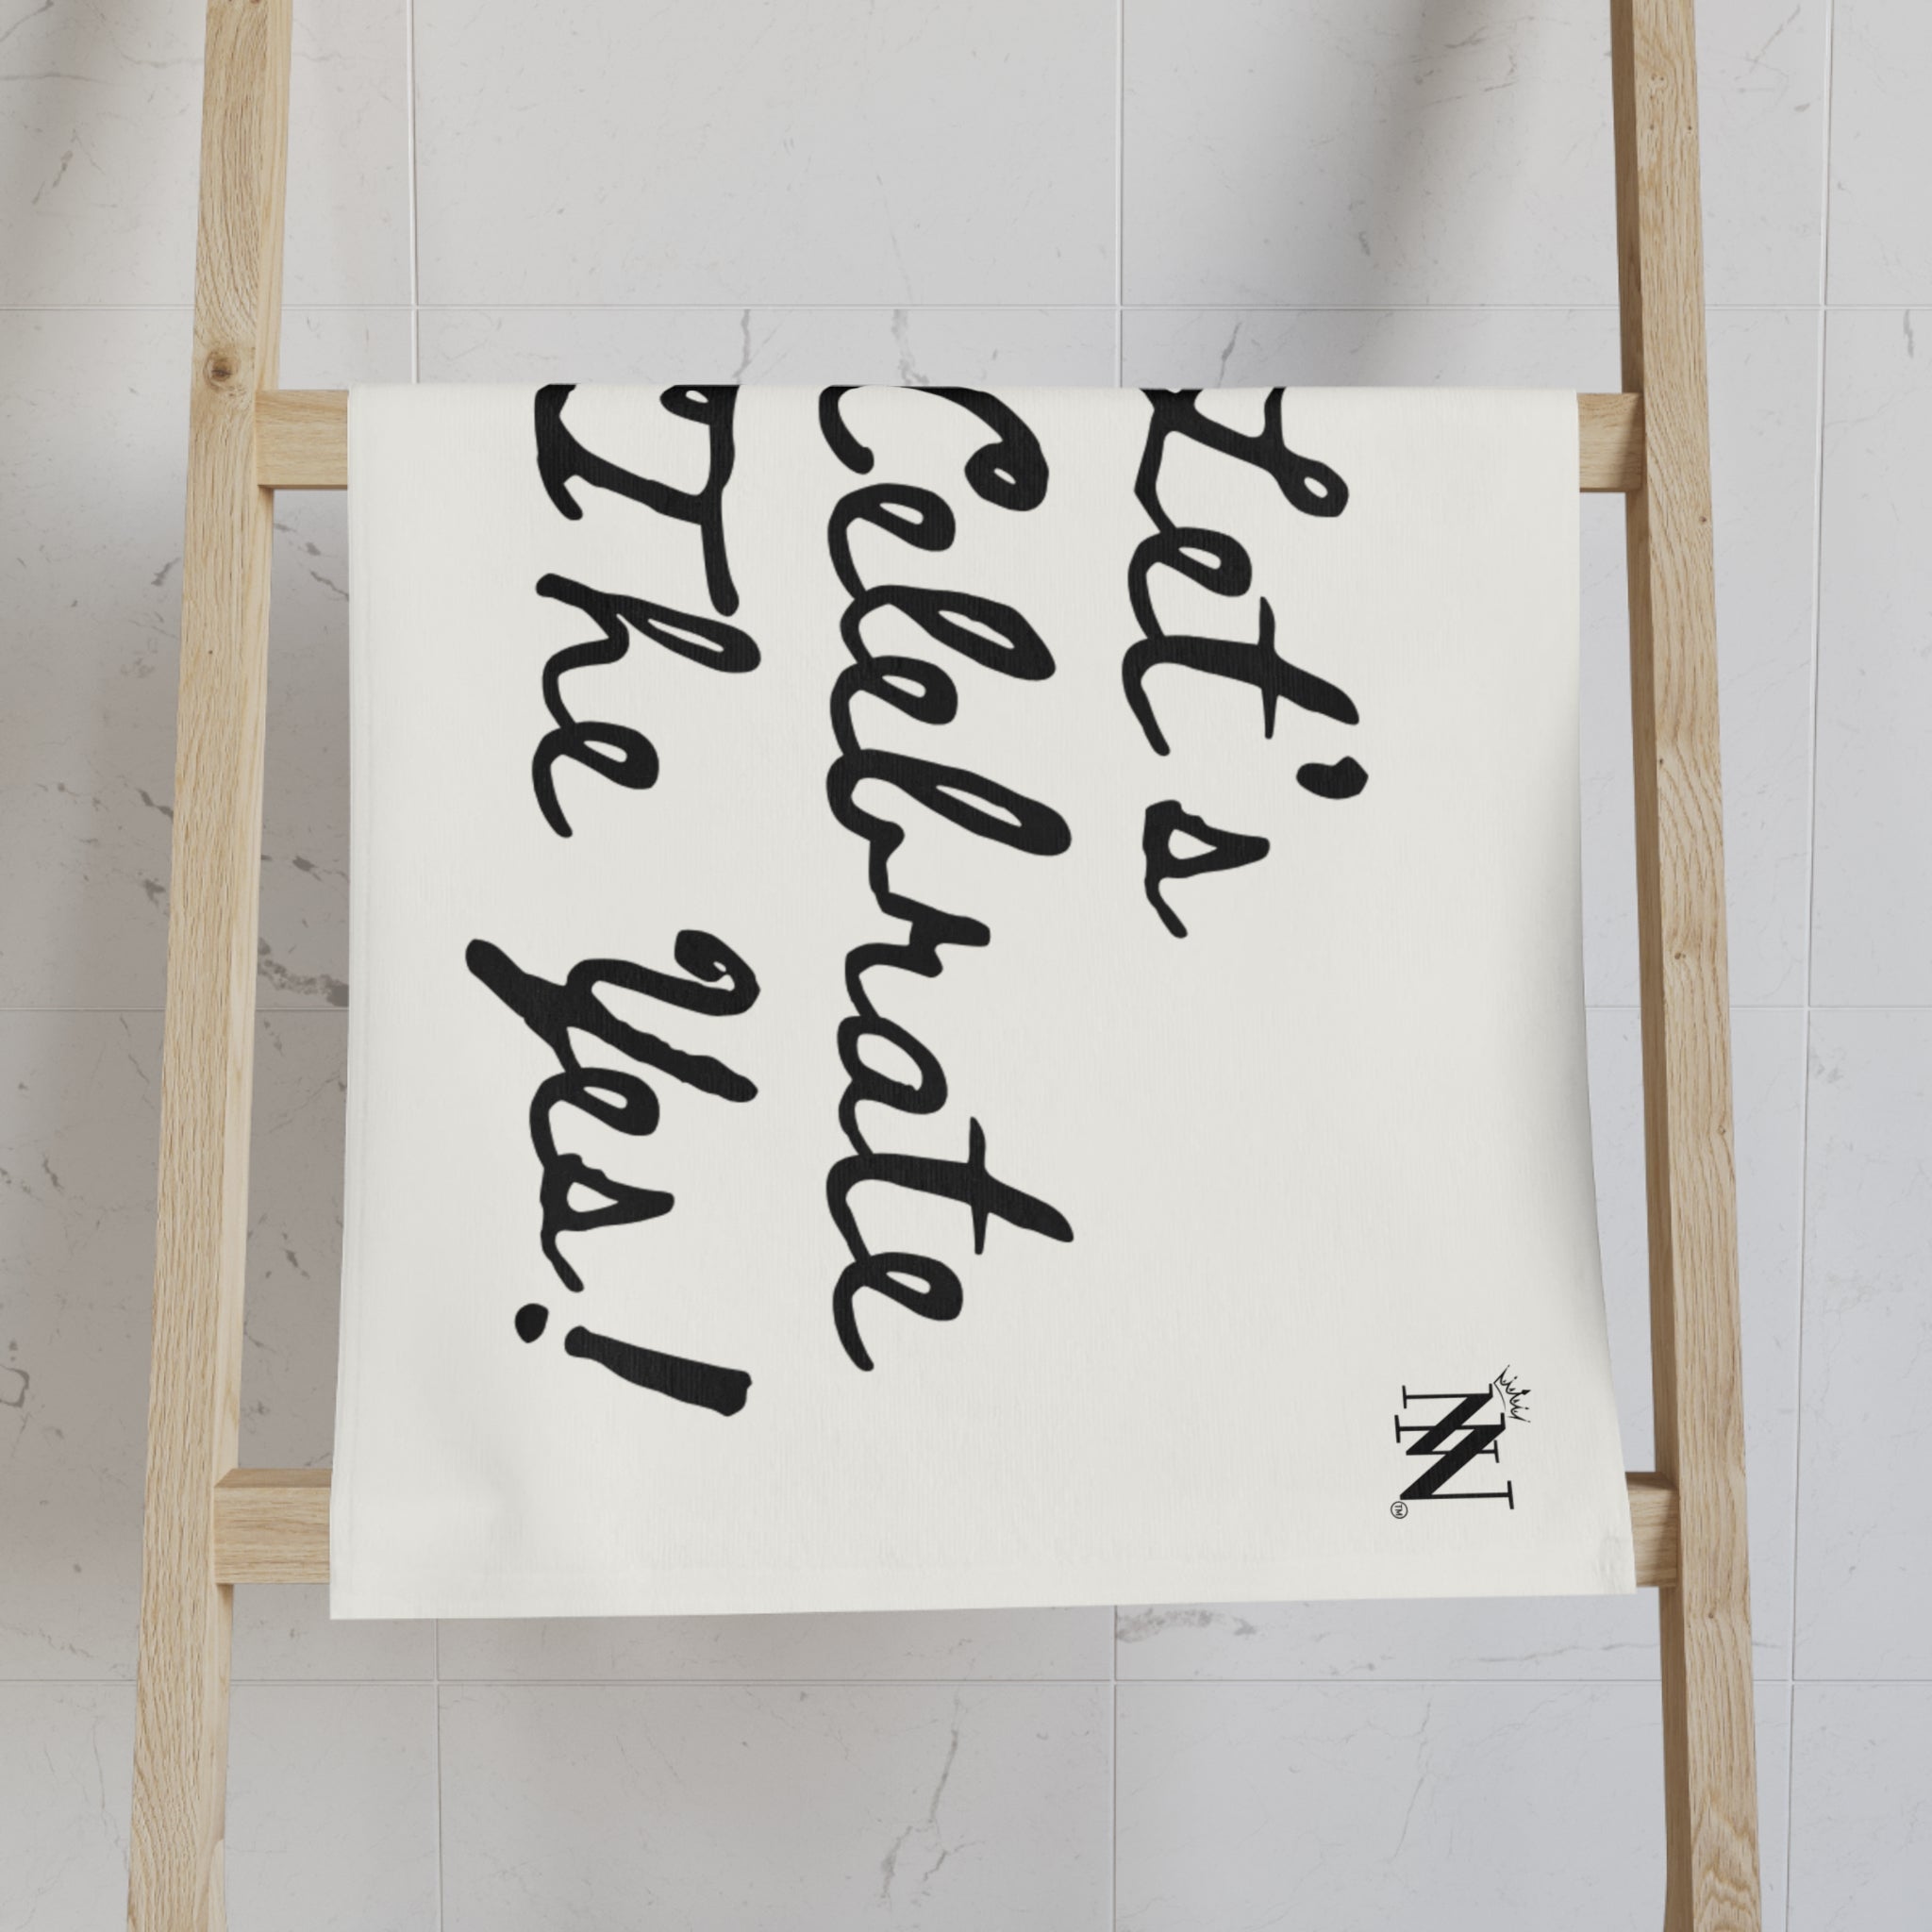 Let's
Celebrate
The Yes!
NN
TM